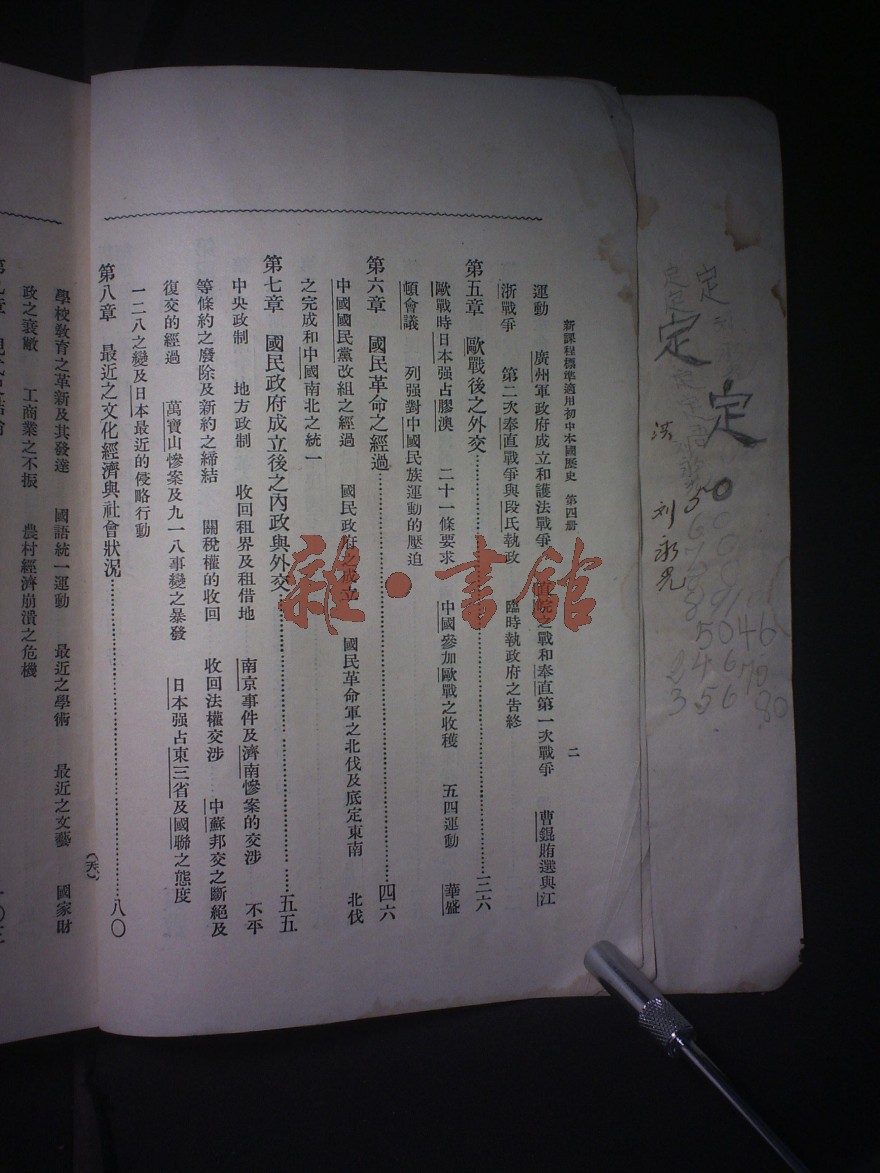 新課程標準適用初中本國歷史　第四册　二
運動　廣州軍政府成立和護法戰爭　直皖之戰和奉直第一次戰爭　曹錕賄選與江
浙戰爭　第二次奉直戰爭與段氏執政　臨時執政府之告終
第五章　歐戰後之外交……三六
歐戰時日本强占膠澳　二十一條要求　中國參加歐戰之收穫　五四運動　華盛
頓會議　列强對中國民族運動的壓迫
第六章　國民革命之經過……四六
中國國民黨改組之經過　國民政府之成立　國民革命軍之北伐及底定東南　北伐
之完成和中國南北之統一
第七章　國民政府成立後之內政與外交……五五
中央政制　地方政制　收回租界及租借地　南京事件及濟南慘案的交涉　不平
等條約之廢除及新約之締結　關稅權的收回　收回法權交涉　中蘇邦交之斷絕及
復交的經過　萬寶山慘案及九一八事變之暴發　日本强占東三省及國聯之態度
一二八之變及日本最近的侵略行動
第八章　最近之文化經濟與社會狀况……八〇
學校敎育之革新及其發達　國語統一運動　最近之學術　最近之文藝　國家財
政之衰敝　工商業之不振　農村經濟崩潰之危機
雜·書館
定
定
定
刘永
50
5046